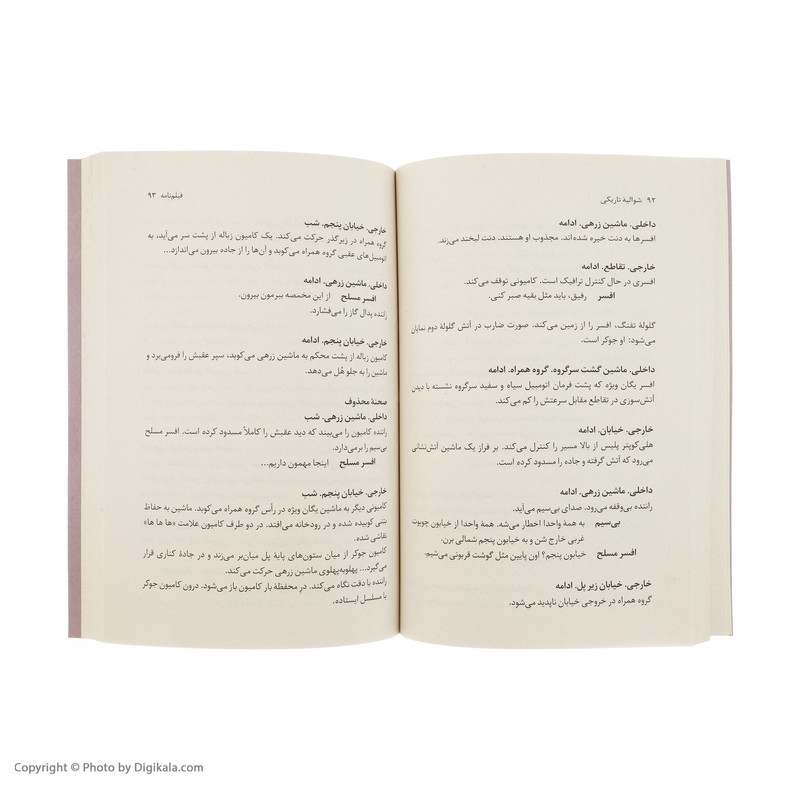 ۹۲ شوالیهٔ تاریکی
داخلی. ماشین زرهی. ادامه
افسرها به دنت خیره شده‌اند. مجذوب او هستند. دنت لبخند می‌زند.
خارجی. تقاطع. ادامه
افسری در حال کنترل ترافیک است. کامیونی توقف می‌کند.
افسر رفیق، باید مثل بقیه صبر کنی.
گلولهٔ تفنگ، افسر را از زمین می‌کند. صورت ضارب در آتش گلولهٔ دوم نمایان
می‌شود: او جوکر است.
داخلی. ماشین گشت سرگروه. گروه همراه. ادامه
افسر یگان ویژه که پشت فرمان اتومبیل سیاه و سفید سرگروه نشسته با دیدن
آتش‌سوزی در تقاطع مقابل سرعتش را کم می‌کند.
خارجی. خیابان. ادامه
هلی‌کوپتر پلیس از بالا مسیر را کنترل می‌کند. بر فراز یک ماشین آتش‌نشانی
می‌رود که آتش گرفته و جاده را مسدود کرده است.
داخلی. ماشین زرهی. ادامه
راننده بی‌وقفه می‌رود. صدای بی‌سیم می‌آید.
بی‌سیم به همهٔ واحدا اخطار می‌شه. همهٔ واحدا از خیابون چویوت
غربی خارج شن و به خیابون پنجم شمالی برن.
افسر مسلح خیابون پنجم؟ اون پایین مثل گوشت قربونی می‌شیم.
خارجی. خیابان زیر پل. ادامه
گروه همراه در خروجی خیابان ناپدید می‌شود.
فیلم‌نامه ۹۳
خارجی. خیابان پنجم. شب
گروه همراه در زیرگذر حرکت می‌کند. یک کامیون زباله از پشت سر می‌آید، به
اتومبیل‌های عقبی گروه همراه می‌کوبد و آن‌ها را از جاده بیرون می‌اندازد...
داخلی. ماشین زرهی. ادامه
افسر مسلح از این مخمصه ببرمون بیرون.
راننده پدال گاز را می‌فشارد.
خارجی. خیابان پنجم. ادامه
کامیون زباله از پشت محکم به ماشین زرهی می‌کوبد، سپر عقبش را فرومی‌برد و
ماشین را به جلو هُل می‌دهد.
صحنهٔ محذوف
داخلی. ماشین زرهی. شب
راننده کامیون را می‌بیند که دید عقبش را کاملاً مسدود کرده است. افسر مسلح
بی‌سیم را برمی‌دارد.
افسر مسلح اینجا مهمون داریم...
خارجی. خیابان پنجم. شب
کامیونی دیگر به ماشین یگان ویژه در رأس گروه همراه می‌کوبد. ماشین به حفاظ
بتنی کوبیده شده و در رودخانه می‌افتد. در دو طرف کامیون علامت «ها ها ها»
نقاشی شده.
کامیون جوکر از میان ستون‌های پایهٔ پل میان‌بر می‌زند و در جادهٔ کناری قرار
می‌گیرد... پهلوبه‌پهلوی ماشین زرهی حرکت می‌کند.
راننده با دقت نگاه می‌کند. درِ محفظهٔ بار کامیون باز می‌شود. درون کامیون جوکر
با مسلسل ایستاده.
Copyright © Photo by Digikala.com